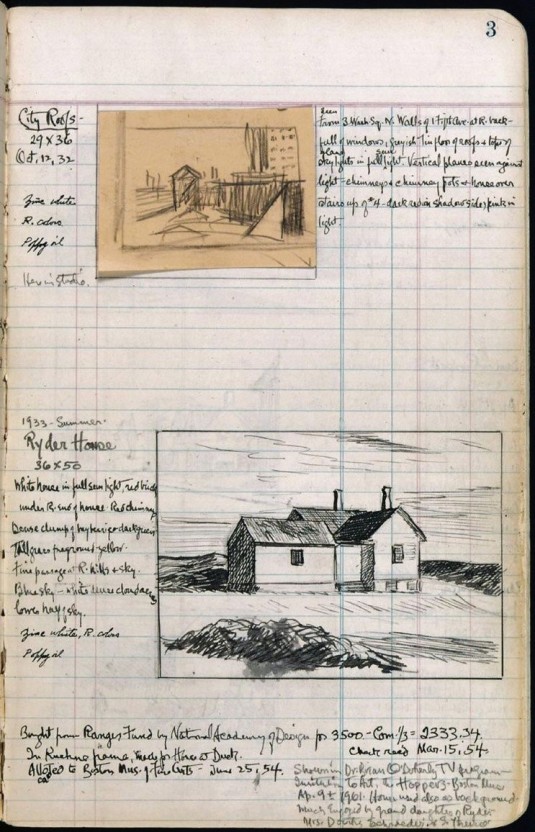 3
City Roofs -
29 x 36
Oct, 12, 32
Zinc white
R. colors
Poppy oil
Here in studio.
seen
From 3 Wash Sq. N. Walls of 1 Fifth Ave. at R. back-
full of windows, greyish Tin floor of roofs & tops of
skylights in full light. Vertical planes seen against
light - chimneys & chimney pots & house over
stairs up of #4 - dark red in shadow side, pink in
light.
1933 - Summer.
Ryder House
36 x 50
White house in full sun light, red birds
under R. end of house. Red chimney
Dense clump of bayberries dark green
Tall grass foreground yellow.
Fine passage at R. hills & sky.
Blue sky - white dense clouds
lower hazy sky.
Zinc white, R. colors
Poppy oil
Bought from Ranger Fund by National Academy of Design for 3500 - Com. 1/3 = 2333.34.
In Kuehne frame, ready for Hines at Dusk. check recd Mar. 15, 54.
Alloted to Boston Mus. of Fine Arts - June 25, 54.
Shown in Dr. Brian O Doherty TV program -
invitation to Art, the Hoppers - Boston Mus
Ap. 9 1961. House used also as background
Much enjoyed by grand daughter of Ryder